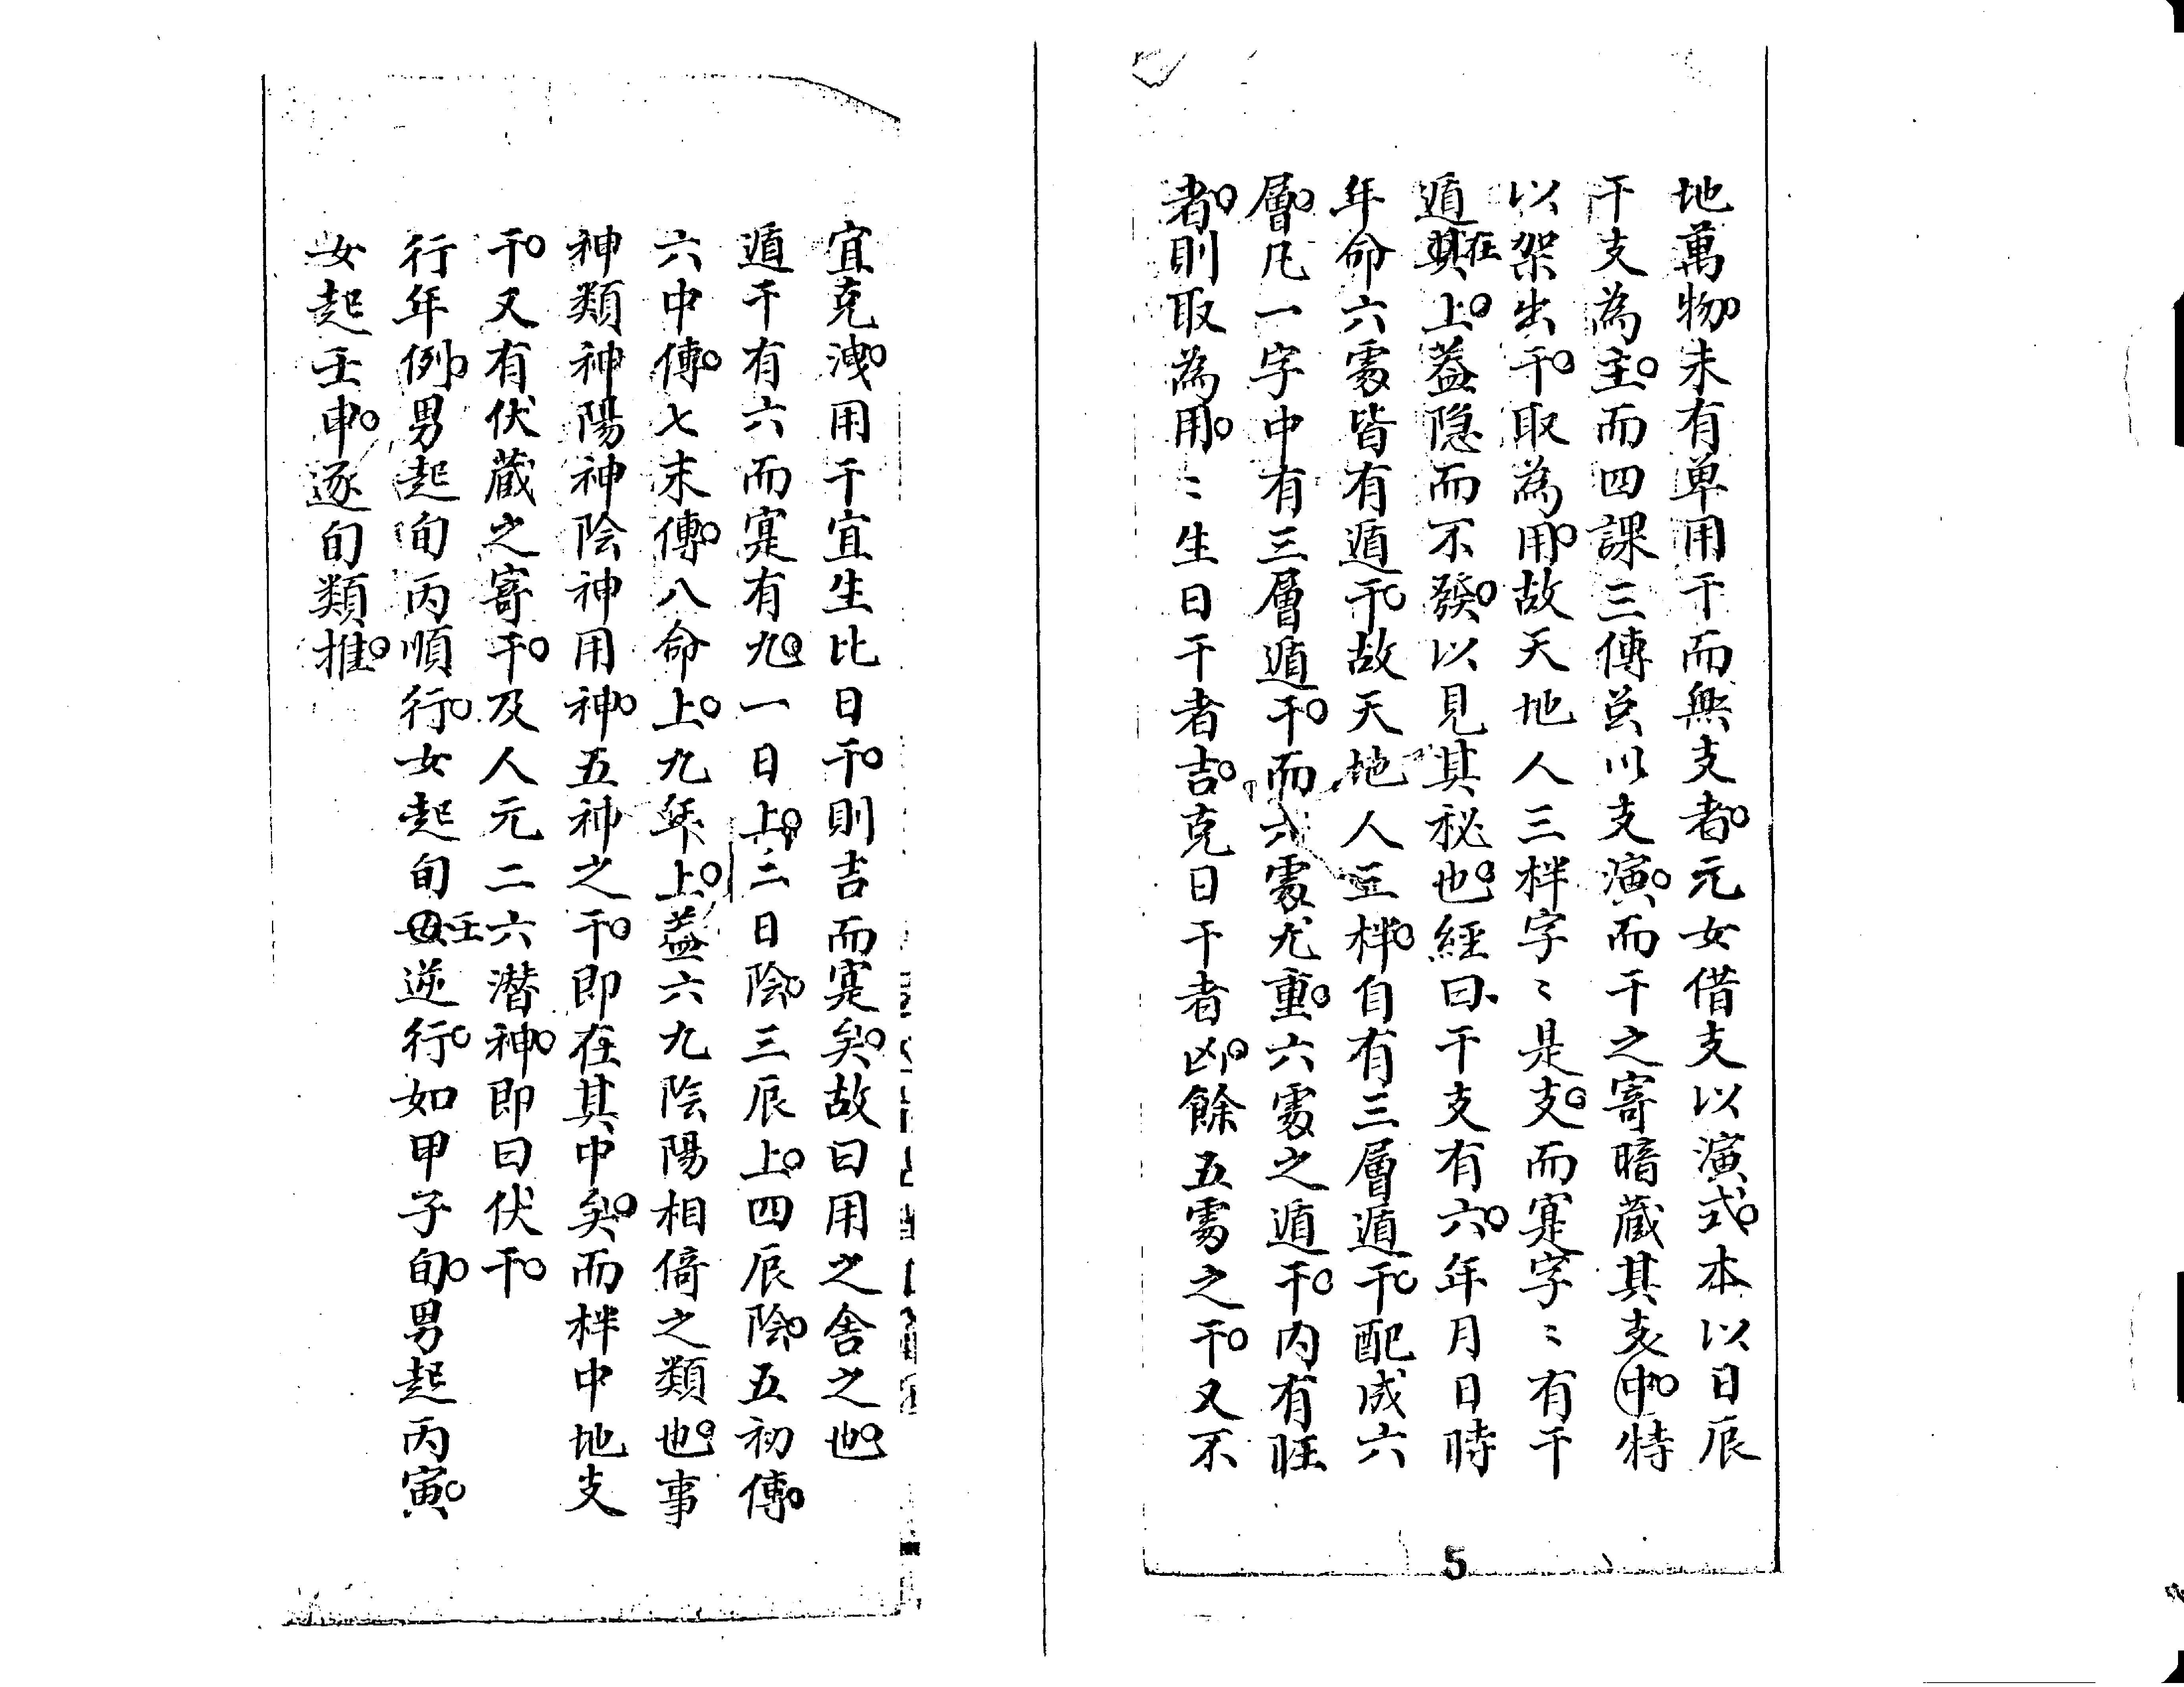 地萬物。未有单用干而無支者。元女借支以演式。本以日辰
干支為主。而四課三傳兹以支演。而干之寄暗蔵其支中。特
以架出干。取為用。故天地人三柈字〻是支。而寔字〻有干
遁在其上。葢隐而不發。以見其秘也。經曰、干支有六。年月日時
年命六䖏皆有遁干。故天地人三柈。自有三層遁干。配成六
層。凡一字中有三層遁干。而六䖏尤重。六䖏之遁干。内有旺
者。則取為用。〻生日干者吉。克日干者凶。餘五䖏之干。又不
宜克洩。用干宜生比日干。則吉而寔矣。故曰用之舍之也。
遁干有六而寔有九。一日上。二日陰。三辰上。四辰陰。五初傳。
六中傳。七末傳。八命上。九年上。葢六九陰陽相倚之類也。事
神類神神陽神陰神用神。五神之干。即在其中矣。而柈中地支
干。又有伏蔵之寄干。及人元二六潜神。即曰伏干。
行年例。男起旬丙順行。女起旬壬逆行。如甲子旬。男起丙寅。
女起壬申。逐旬類推。
5